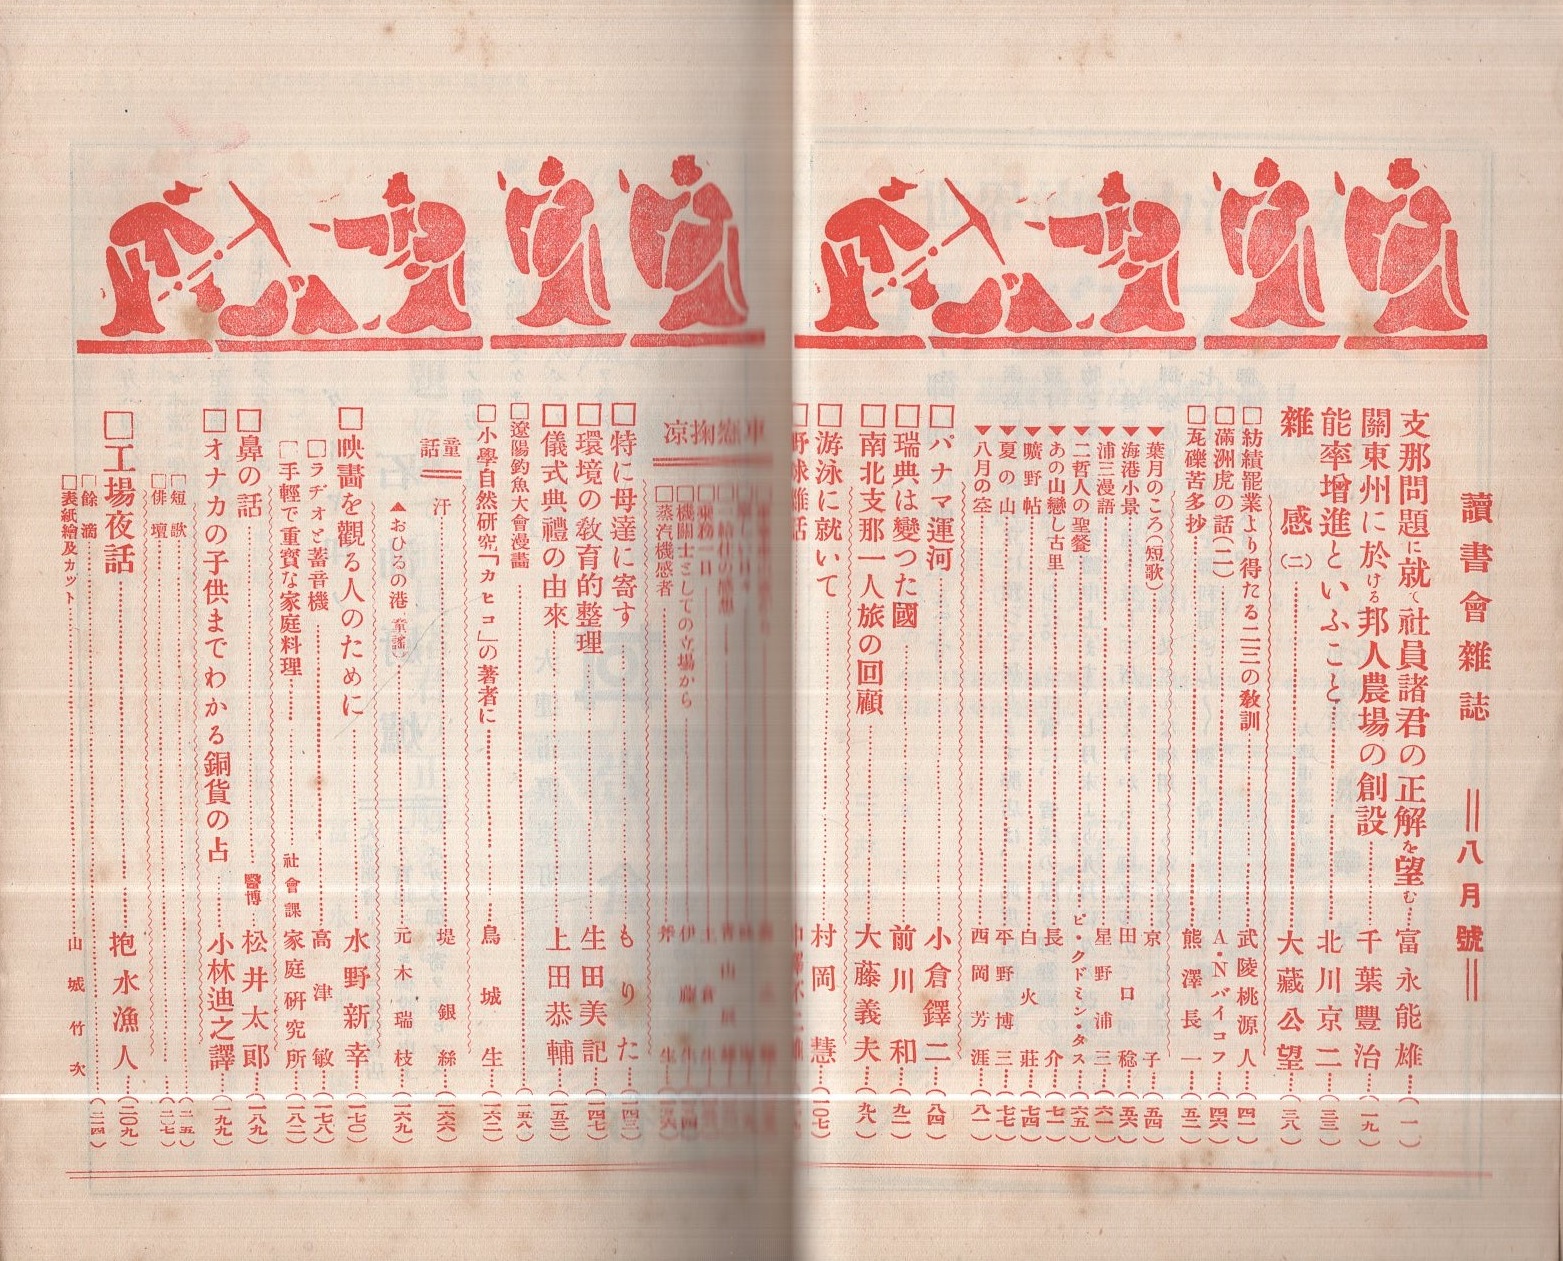 讀書會雜誌 ＝八月號＝
支那問題に就て社員諸君の正解を望む……富永能雄……(一)
關東州に於ける邦人農場の創設……千葉豐治……(一九)
能率增進といふこと……北川京二……(三三)
雜感(二)……大藏公望……(三八)
□紡績罷業より得たる二三の敎訓……武陵桃源人……(四一)
□滿洲虎の話(二)……A・Nバイコフ……(四六)
□瓦礫苦多抄……熊澤長一……(五三)
▼葉月のころ(短歌)……京子……(五四)
▼海港小景……田口稔……(五六)
▼浦三漫語……星野浦三……(六一)
▼二哲人の聖餐……ピ・クドミン・タス……(六五)
▼あの山戀し古里……長介……(七一)
▼曠野帖……白火莊……(七四)
▼夏の山……平野博三……(七七)
▼八月の空……西岡芳涯……(八一)
□パナマ運河……小倉鐸二……(八四)
□瑞典は變つた國……前川和……(九二)
□南北支那一人旅の回顧……大藤義夫……(九八)
□游泳に就いて……村岡慧……(一〇七)
□野球雜話
車窓掬凉
□乘務一日
□機關士としての立場から……伊
□蒸汽機感者……生
□特に母達に寄す……もりた……(一四三)
□環境の敎育的整理……生田美記……(一四七)
□儀式典禮の由來……上田恭輔……(一五三)
□遼陽釣魚大會漫畵……(一五八)
□小學自然硏究「カヒコ」の著者に……鳥城生……(一六二)
童話＝汗……堤銀絲……(一六六)
▲おひるの港(童謠)……元木瑞枝……(一六九)
□映畵を觀る人のために……水野新幸……(一七〇)
□ラヂオと蓄音機……高津敏……(一七八)
□手輕で重寶な家庭料理……社會課 家庭硏究所……(一八二)
□鼻の話……醫博 松井太郎……(一八九)
□オナカの子供までわかる銅貨の占……小林迪之譯……(一九九)
□短歌……(二一五)
□俳壇……(二〇七)
□工場夜話……抱水漁人……(二〇九)
□餘滴……(二二四)
□表紙繪及カット……山城竹次